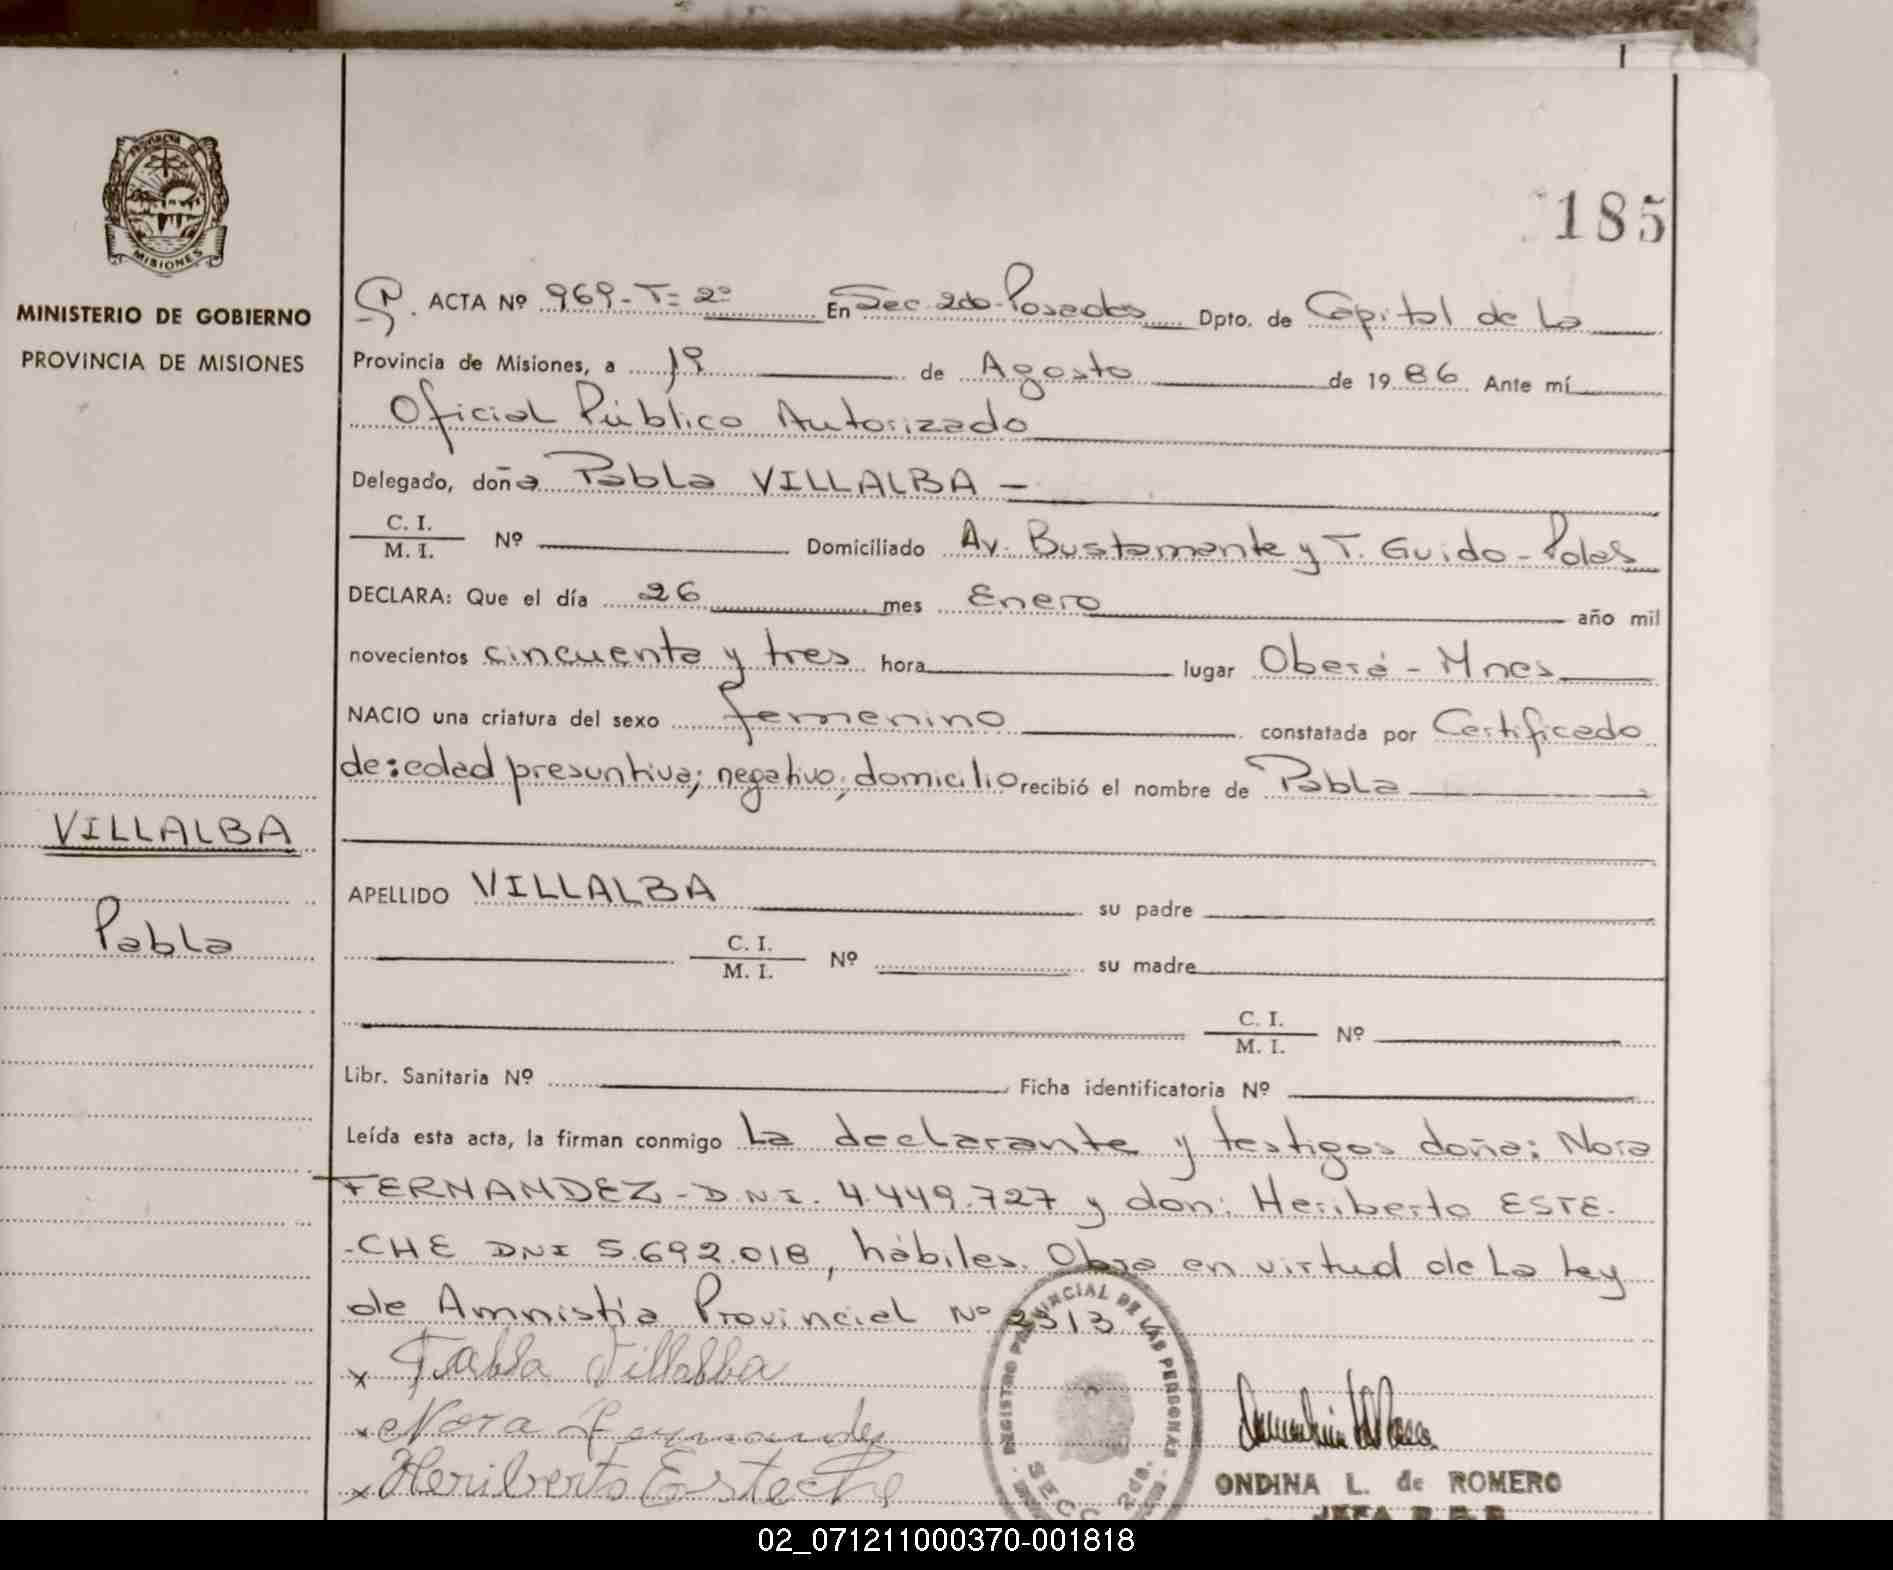 185
PROVINCIA D
MISIONES
MINISTERIO DE GOBIERNO
PROVINCIA DE MISIONES
ACTA Nº 969-T=2º En Sec. 2da-Posadas Dpto. de Capital de La
Provincia de Misiones, a 19 de Agosto de 1986 Ante mí
Oficial Público Autorizado
Delegado, doña Pabla VILLALBA -
C. I.
M. I. Nº Domiciliado Av. Bustamante y T. Guido - Pdas
DECLARA: Que el día 26 mes Enero año mil
novecientos cincuenta y tres hora lugar Oberá - Mnes
NACIO una criatura del sexo femenino constatada por Certificado
de: edad presuntiva; negativo; domicilio recibió el nombre de Pabla
VILLALBA
Pabla
APELLIDO VILLALBA su padre
C. I.
M. I. Nº su madre
C. I.
M. I. Nº
Libr. Sanitaria Nº Ficha identificatoria Nº
Leída esta acta, la firman conmigo La declarante y testigos doña: Nora
FERNANDEZ - D.N.I. 4.449.727 y don: Heriberto ESTE-
-CHE DNI 5.692.018, hábiles. Obra en virtud de La Ley
de Amnistía Provincial Nº 2313
x Pabla Villalba
x Nora Fernandez
x Heriberto Esteche
REGISTRO PROVINCIAL DE LAS PERSONAS
SECC. 2da.
ONDINA L. de ROMERO
02_071211000370-001818